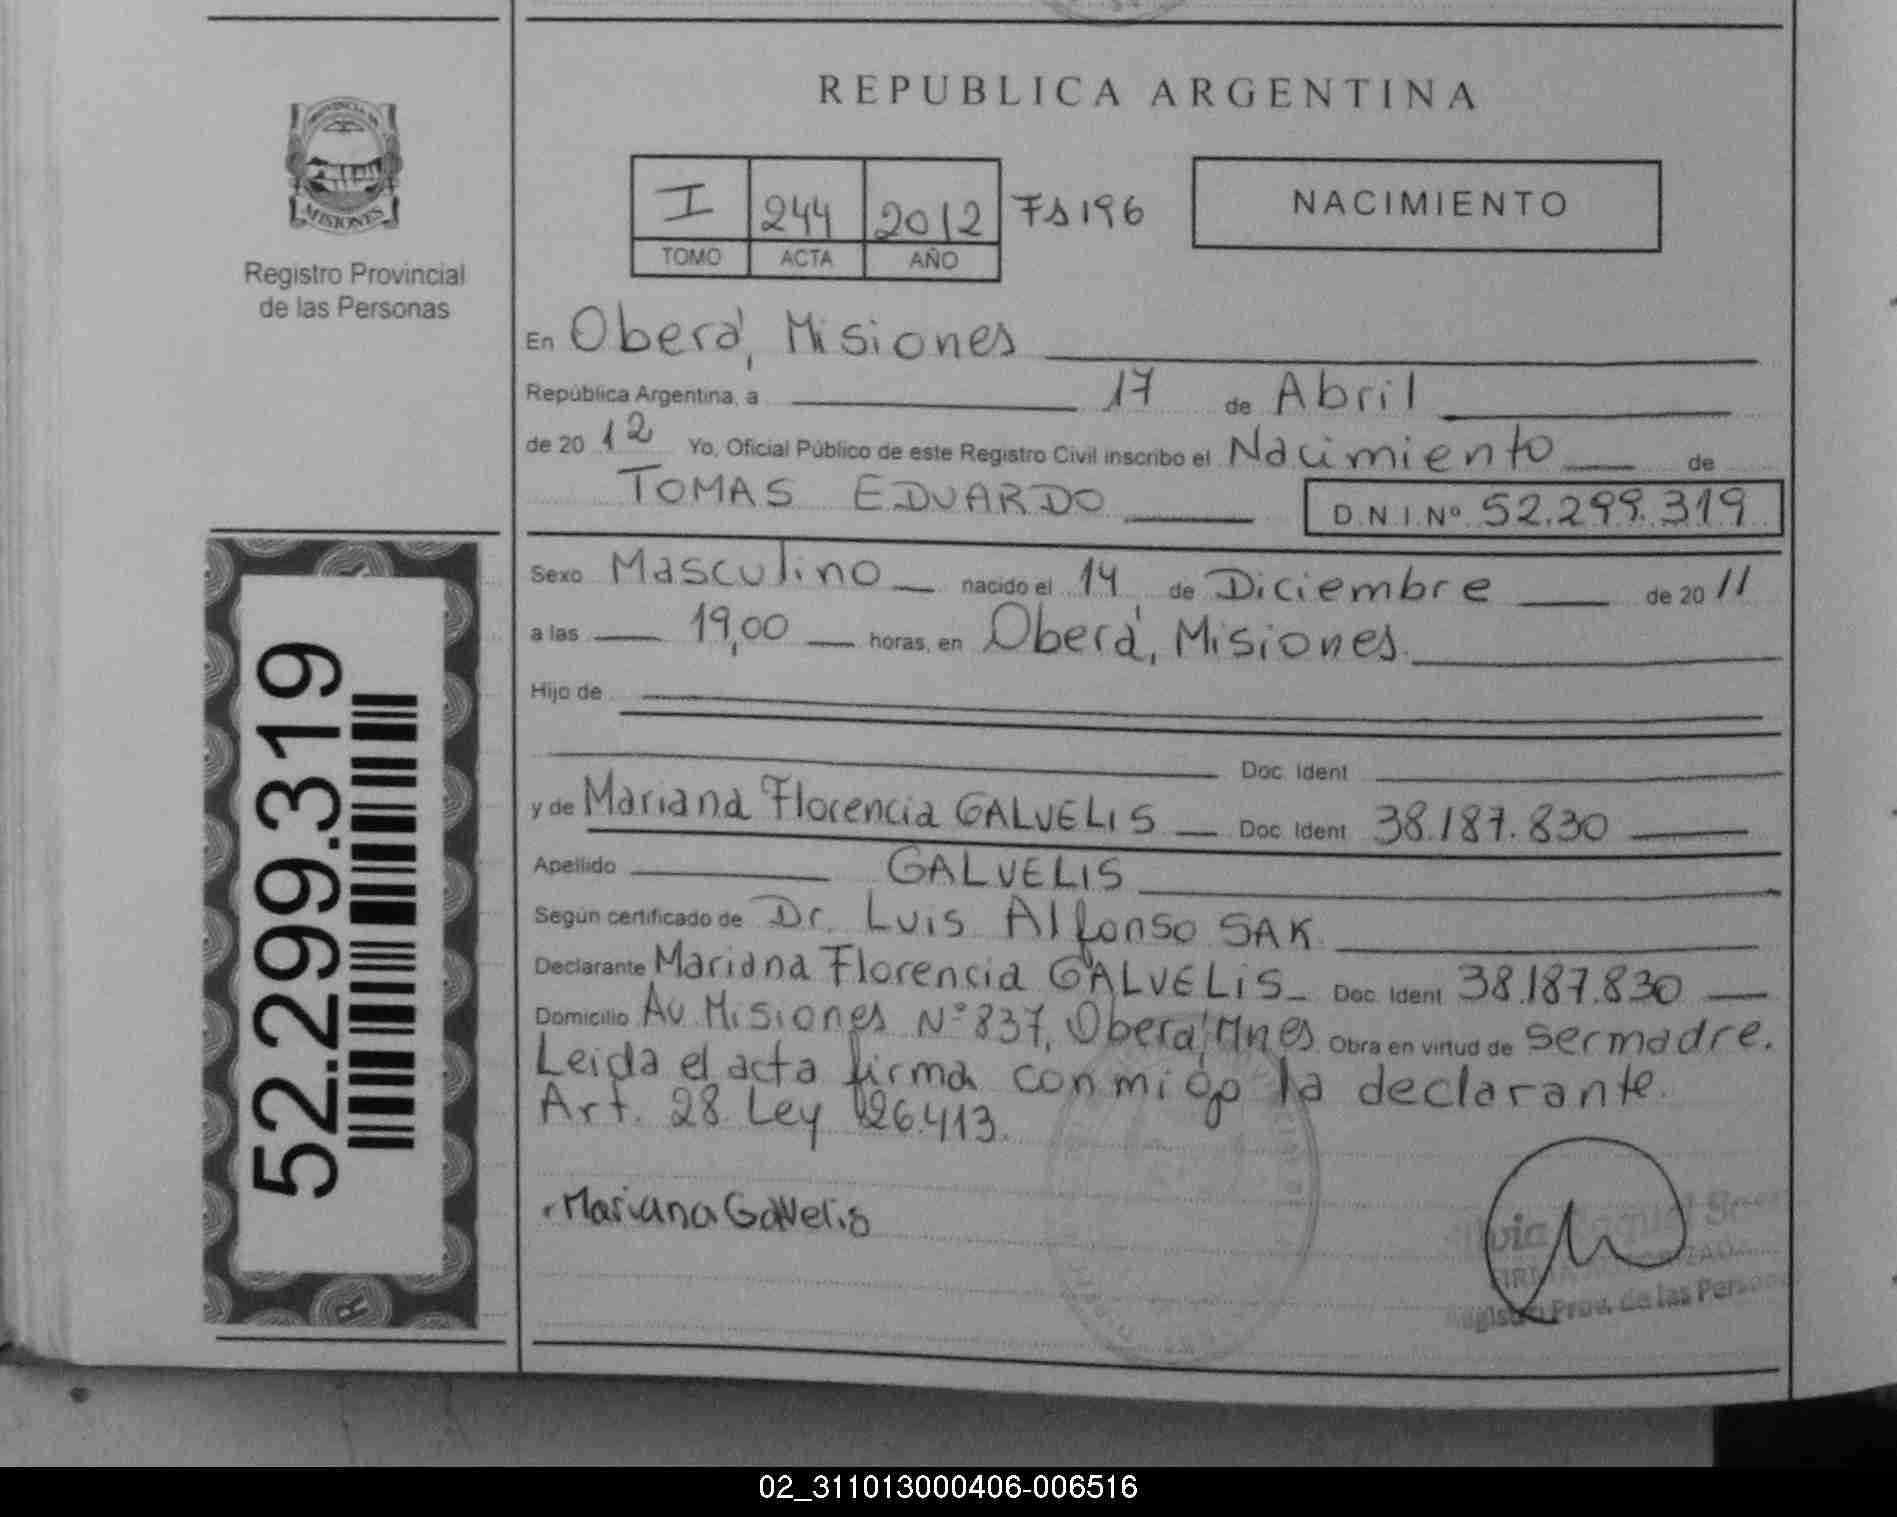 REPUBLICA ARGENTINA
PROVINCIA DE
MISIONES
Registro Provincial
de las Personas
I 244 2012 Fs 196
TOMO ACTA AÑO
NACIMIENTO
En Oberá, Misiones
República Argentina, a 17 de Abril
de 2012 Yo, Oficial Público de este Registro Civil inscribo el Nacimiento de
TOMAS EDUARDO D.N.I.Nº 52.299.319
Sexo Masculino nacido el 14 de Diciembre de 2011
a las 19,00 horas, en Oberá, Misiones.
Hijo de
Doc. Ident
y de Mariana Florencia GALVELIS Doc. Ident 38.187.830
Apellido GALVELIS
Según certificado de Dr. Luis Alfonso SAK
Declarante Mariana Florencia GALVELIS Doc. Ident 38.187.830
Domicilio Av. Misiones Nº 837, Oberá, Mnes Obra en virtud de ser madre.
Leida el acta firma conmigo la declarante.
Art. 28 Ley 26.413.
Mariana Galvelis
Registro Prov. de las
52.299.319
02_311013000406-006516